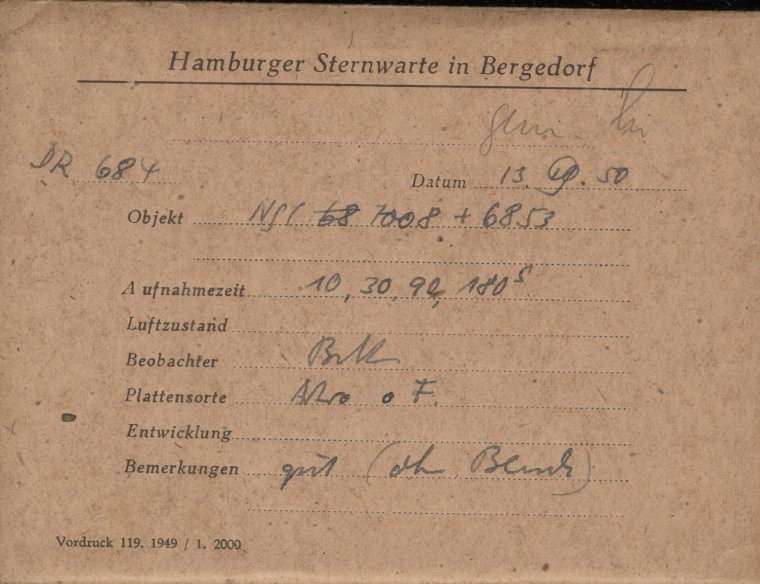 Hamburger Sternwarte in Bergedorf
DR 684
Datum 13. 50
Objekt NGC 68 7008 + 6853
Aufnahmezeit 10, 30, 90, 180 s
Luftzustand
Beobachter
Plattensorte Astro o F.
Entwicklung
Bemerkungen gut (
Vordruck 119. 1949 / 1. 2000